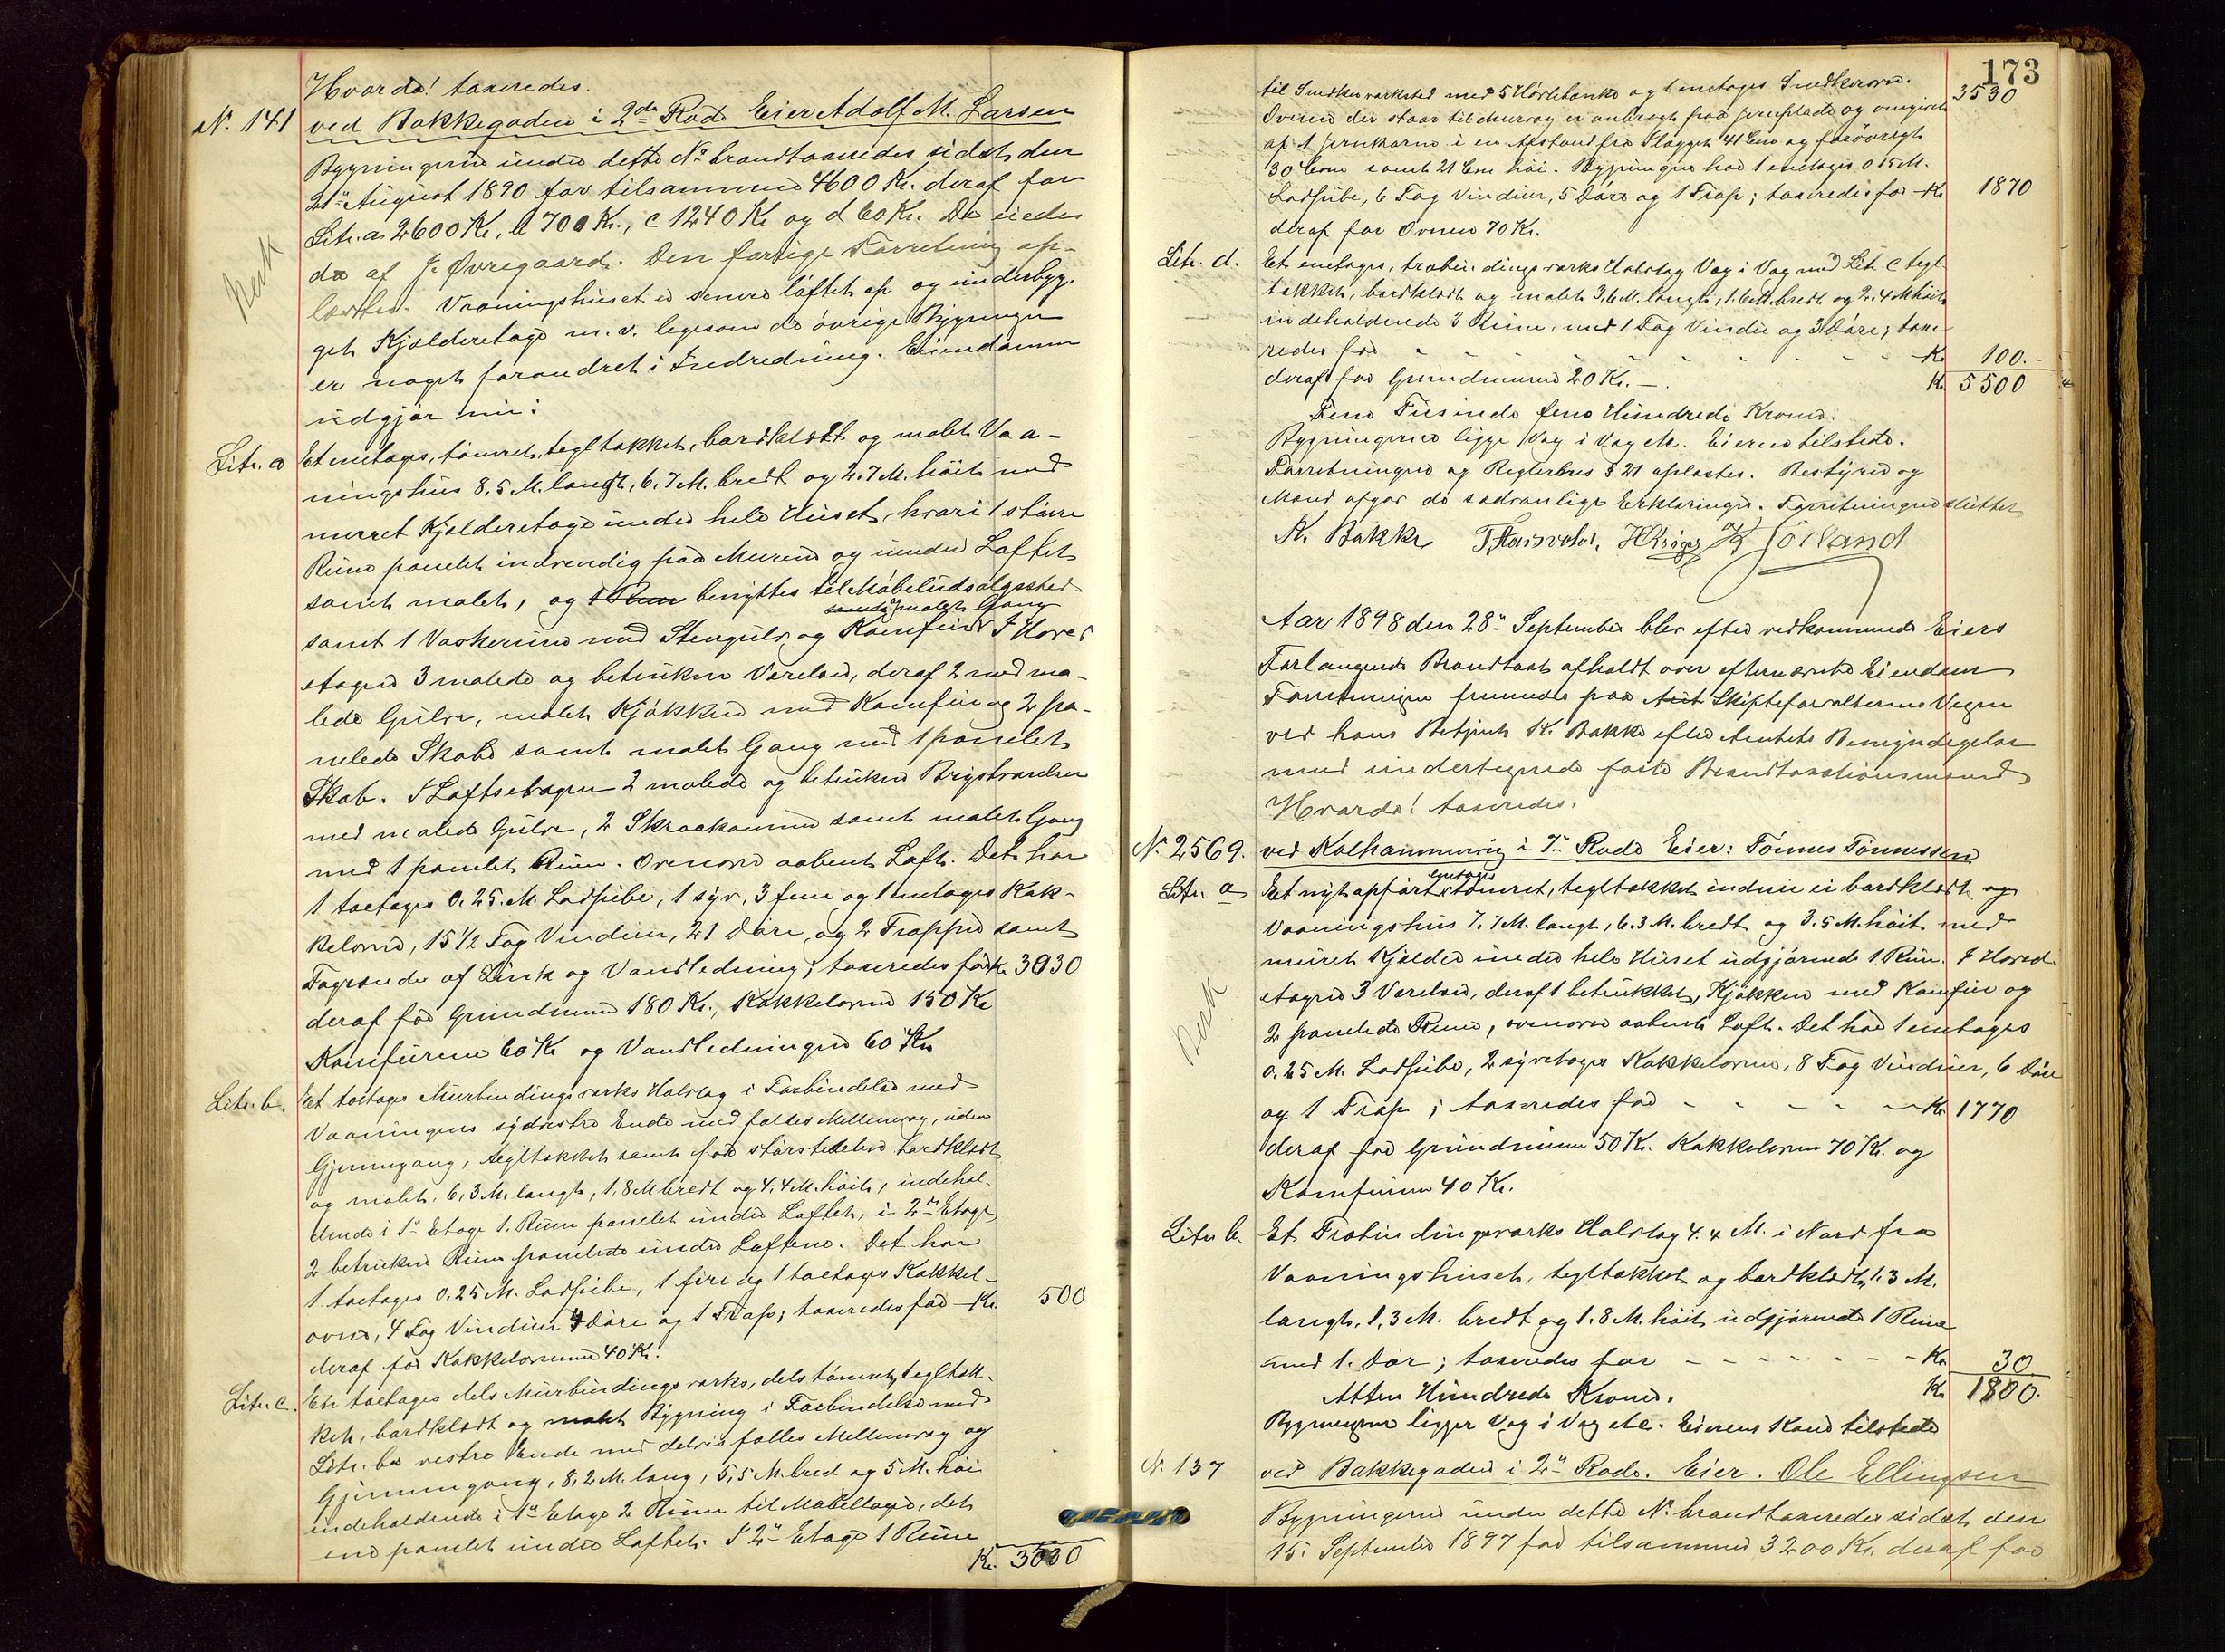 Hvorda! taxeredes.
N. 141 ved Bakkegaden i 2de Rode Eier Adolf M. Larsen
Bygningerne under dette No brandtaxeredes sidst den
21de August 1890 for tilsammen 4600 Kr. deraf for
Litr. a 2600 Kr, b 700 Kr., c 1240 Kr og d 60 Kr. De eiedes
da af J. Øvregaard. Den forrige Forretning op-
læstes. Vaaningshuset er senere løftet op og underbyg-
get Kjælderetage m. v. ligesom de øvrige Bygninger
er noget forandret i Indredning. Eiendommen
udgjør nu:
Litr. a Et enetages, tømret, tegltækket, bordklædt og malet Vaa-
ningshus 8,5 M. langt, 6.7 M. bredt og 2.7 M. høit med
murret Kjælderetage under hele Huset, hvori 1 større
Rum panelet indvendig paa Muren og under Loftet
samt malet, og 1 Rum benyttes til Møbeludsalgssted
samt og malet Gang
samt 1 Vaskerum med Stengulv og Komfur I Hoved
etagen 3 malede og betrukne Værelser, deraf 2 med ma-
lede Gulve, malet Kjøkken med Komfur og 2 pa-
nelede Skabe samt malet Gang med 1 panelet
Skab. I Loftsetagen 2 malede og betrukne Brystværelser
med malede Gulve, 2 Skraakammer samt malet Gang
med 1 panelet Rum. Ovenover aabent Loft. Det har
1 toetages 0.25. M. Lodpibe, 1 syv, 3 fem og 1 enetages Kak-
kelovne, 15 1/2 Fag Vinduer, 21 Døre, og 2 Trapper samt
Tagrender af Zink og Vandledning; taxeredes for Kr. 3030
deraf for Grundmuren 180 Kr., Kakkelovne 150 Kr
Komfurene 60 Kr og Vandledningen 60 Kr
Litr. b. Et toetages Murbindingsværks Halvtag i Forbindelse med
Vaaningens sydvestre Ende med fælles Mellemvæg, uden
Gjennemgang, tegltækket samt for størstedelen bordklædt
og malet, 6,3 M. langt, 1,8 M bredt og 4,4 M. høit, indehol-
dende i 1ste Etage 1. Rum panelet under Loftet, i 2den Etage
2 betrukne Rum panelede under Loftene. Det har
1 toetages 0.25 M. Lodpibe, 1 fire og 1 toetages Kakkel-
ovne, 4 Fag Vinduer 4 Døre og 1 Trap; taxeredes for Kr. 500
deraf for Kakkelovnene 40 Kr.
Litr. c. En toetages dels Murbindingsværks, dels tømret, tegltæk-
ket, bordklædt og malet Bygning i Forbindelse med
Litr. b's vestre Ende med delvis fælles Mellemvæg og
Gjennemgang, 8,2 M. lang, 5,5 M. bred og 5 M. høi
indeholdende i 1ste Etage 2 Rum til Møbellager, det
ene panelet under Loftet. I 2den Etage 1 Rum
Kr. 3030
173
til Snedkerværksted med 5 Høvlebænke og 1 enetages Snedkerovn. 3530
Ovnen der staar til Murvæg er anbragt paa Jernplade og omgivet
af 1 Jernkarm i en Afstand fra Ilægget 41 Cm og forøvrigt
30 Ctm samt 21 Cm høi. Bygningen har 1 enetages 0.15 M.
Lodpibe, 6 Fag Vinduer, 5 Døre og 1 Trap; taxeredes for Kr 1870
deraf for Ovnen 70 Kr.
Litr. d. Et enetages, træbindingsværks Halvtag Væg i Væg med Litr. c tegl-
tækket, bordklædt og malet 3,6 M. langt, 1.6 M. bredt og 2.4 M høit
indeholdende 3 Rum, med 1 Fag Vindu og 3 Døre; taxe-
redes for - - - - Kr 100.-
deraf for Grundmuren 20 Kr. Kr. 5500
Fem Tusinde fem Hundrede Kroner.
Bygningerne ligge Væg i Væg M. Eieren tilstede.
Forretningen og Reglernes § 21 oplæstes. Bestyrer og
Mænd afgav de sædvanlige Erklæringer. Forretningen sluttet
K. Bakke
Aar 1898 den 28de September blev efter vedkommende Eiers
Forlangende Brandtaxt afholdt over efternævnte Eiendom
Forretningen fremmedes paa Amt Skifteforvalterens Vegne
ved hans Betjent K. Bakke efter Amtets Bemyndigelse
med undertegnede faste Brandtaxationsmænd
Hvorda! taxeredes.
N. 2569. ved Kolhammervig i 7de Rode Eier: Tønnes Tønnessen
enetages
Litr. a Et nyt opført tømret, tegltækket endnu ei bordklædt og
Vaaningshus 7.7 M. langt, 6.3 M. bredt og 3.5 M. høit med
muret Kjælder under hele Huset udgjørende 1. Rum. I Hoved-
etagen 3 Værelser, deraf 1 betrukket, Kjøkken med Komfur og
2 panelede Rum, ovenover aabent Loft. Det har 1 enetages
0.25 M. Lodpibe, 2 syvetages Kakkelovne, 8 Fag Vinduer, 6 Døre
og 1 Trap; taxeredes for - - - - Kr 1770
deraf for Grundmuren 50 Kr. Kakkelovnene 70 Kr. og
Komfuret 40 Kr.
Litr. b. Et Træbindingsværks Halvtag 4.4 M. i Nord fra
Vaaningshuset, tegltækket og bordklædt, 1.3 M.
langt, 1,3 M. bredt og 1.8 M. høit udgjørende 1 Rum
med 1. Dør; taxeredes for - - - - Kr 30
Atten Hundrede Kroner. Kr 1800.
Bygningerne ligger Væg i Væg etc. Eierens Kone tilstede
N. 137 ved Bakkegaden i 2den Rode. Eier. Ole Ellingsen
Bygningerne under dette No. brandtaxeredes sidst den
15. September 1897 for tilsammen 3200 Kr. deraf for